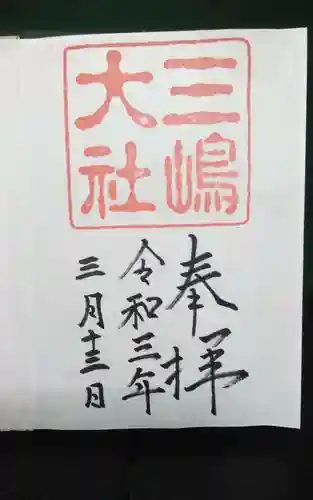 三嶋
大社
奉拝
令和三年
三月十三日